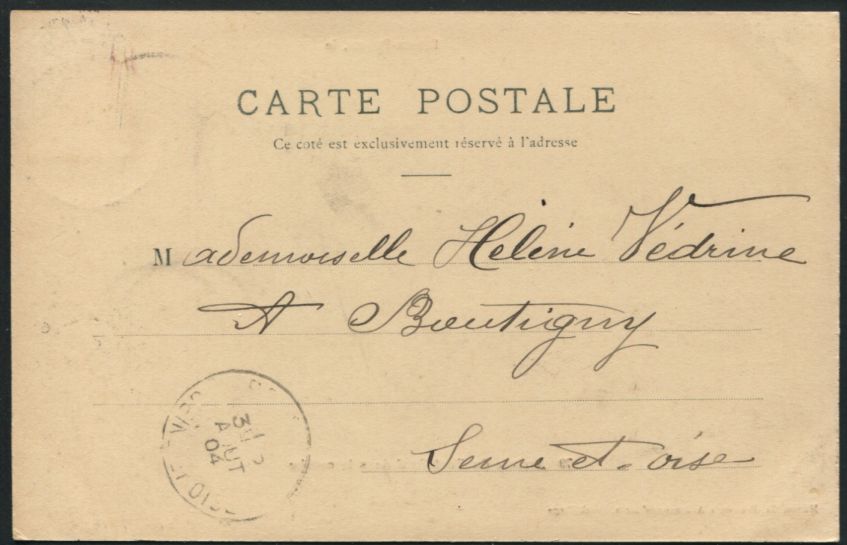 CARTE POSTALE
Ce coté est exclusivement réservé à l'adresse
Mademoiselle Hélène Védrine
A Boutigny
Seine et Oise
AOUT
04